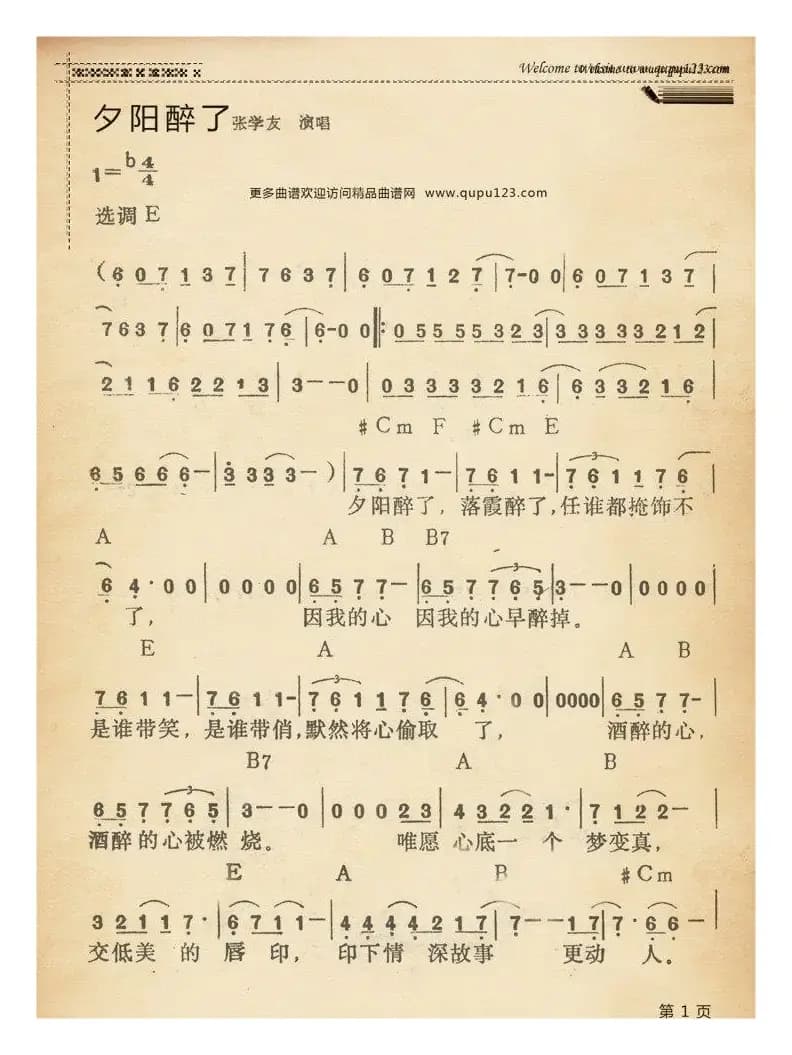 Welcome to visit www.qupu123.com
夕阳醉了 张学友 演唱
1=b 4/4
更多曲谱欢迎访问精品曲谱网 www.qupu123.com
选调 E
(6 0 7 1 3 7 | 7 6 3 7 | 6 0 7 1 2 7 | 7-0 0 | 6 0 7 1 3 7 |
7 6 3 7 | 6 0 7 1 7 6 | 6-0 0 ‖: 0 5 5 5 5 5 3 2 3 | 3 3 3 3 3 2 1 2 |
2 1 1 6 2 2 1 3 | 3--0 | 0 3 3 3 3 2 1 6 | 6 3 3 2 1 6 |
#Cm F #Cm E
6 5 6 6 6- | 3 3 3 3- - ) | 7 6 7 1- | 7 6 1 1- | 7 6 1 1 7 6 |
夕阳醉了, 落霞醉了,任谁都掩饰不
A A B B7
6 4·0 0 | 0 0 0 0 | 6 5 7 7- | 6 5 7 7 6 5 | 3--0 | 0 0 0 0 |
了, 因我的心 因我的心早醉掉。
E A A B
7 6 1 1- | 7 6 1 1- | 7 6 1 1 7 6 | 6 4·0 0 | 0000 | 6 5 7 7- |
是谁带笑, 是谁带俏,默然将心偷取 了, 酒醉的心,
B7 A B
6 5 7 7 6 5 | 3--0 | 0 0 0 2 3 | 4 3 2 2 1· | 7 1 2 2- |
酒醉的心被燃 烧。 唯愿 心底一 个 梦变真,
E A B #Cm
3 2 1 1 7· | 6 7 1 1- | 4 4 4 4 2 1 7 | 7--1 7 | 7·6 6- |
交低美 的 唇 印, 印下情 深故事 更动 人。
第 1 页